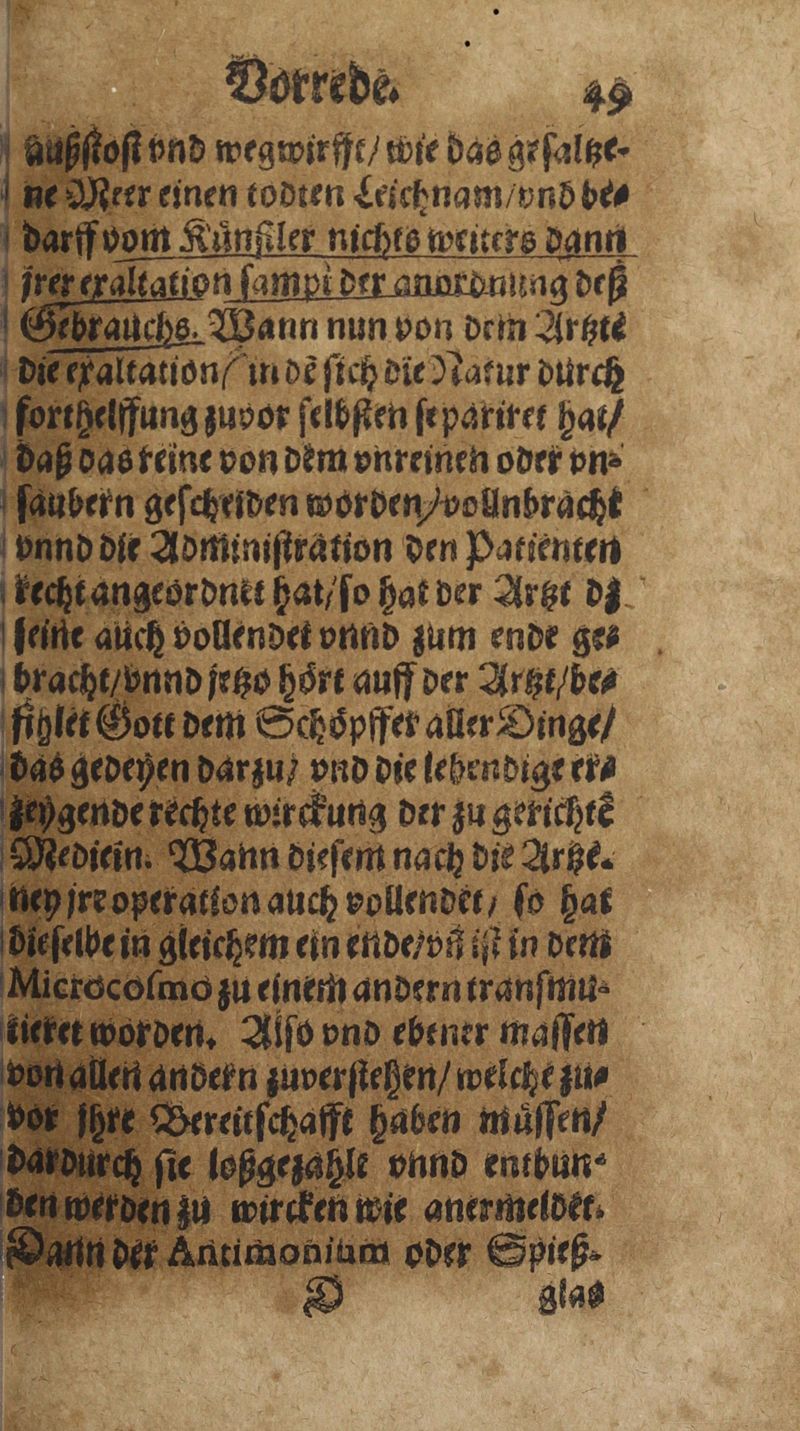 Vorrede. 49
außstost vnd wegwirfft/ wie das gesaltze-
ne Meer einen todten Leichnam/ vnd be-
darff vom Künstler nichts weiters dann
jrer exaltation sampt der anordnung deß
Gebrauchs. Wann nun von dem Artzte
die exaltation/ in dẽ sich die Natur durch
forthelffung zuvor selbsten separiret hat/
daß das reine von dem vnreinen oder vn-
saubern gescheiden worden/ vollnbracht
vnnd die Administration den Patienten
recht angeordnet hat/ so hat der Artzt dz
seine auch vollendet vnnd zum ende ge-
bracht/ vnnd jetzo hört auff der Artzt/ be-
fihlet Gott dem Schöpffer aller Dinge/
das gedeyen darzu/ vnd die lebendige er-
zeygende rechte wirckung der zu gerichtẽ
Mediein. Wann diesem nach die Artze-
ney jre operation auch vollendet/ so hat
dieselbe in gleichem ein ende/ vñ ist in dem
Microcosmo zu einem andern transmu-
tieret worden. Also vnd ebener massen
von allen andern zuverstehen/ welche zu-
vor jhre Bereitschafft haben müssen/
dardurch sie loßgezahlt vnnd entbun-
den werden zu wircken wie anermeldet.
Dann der Antimonium oder Spieß-
D glas